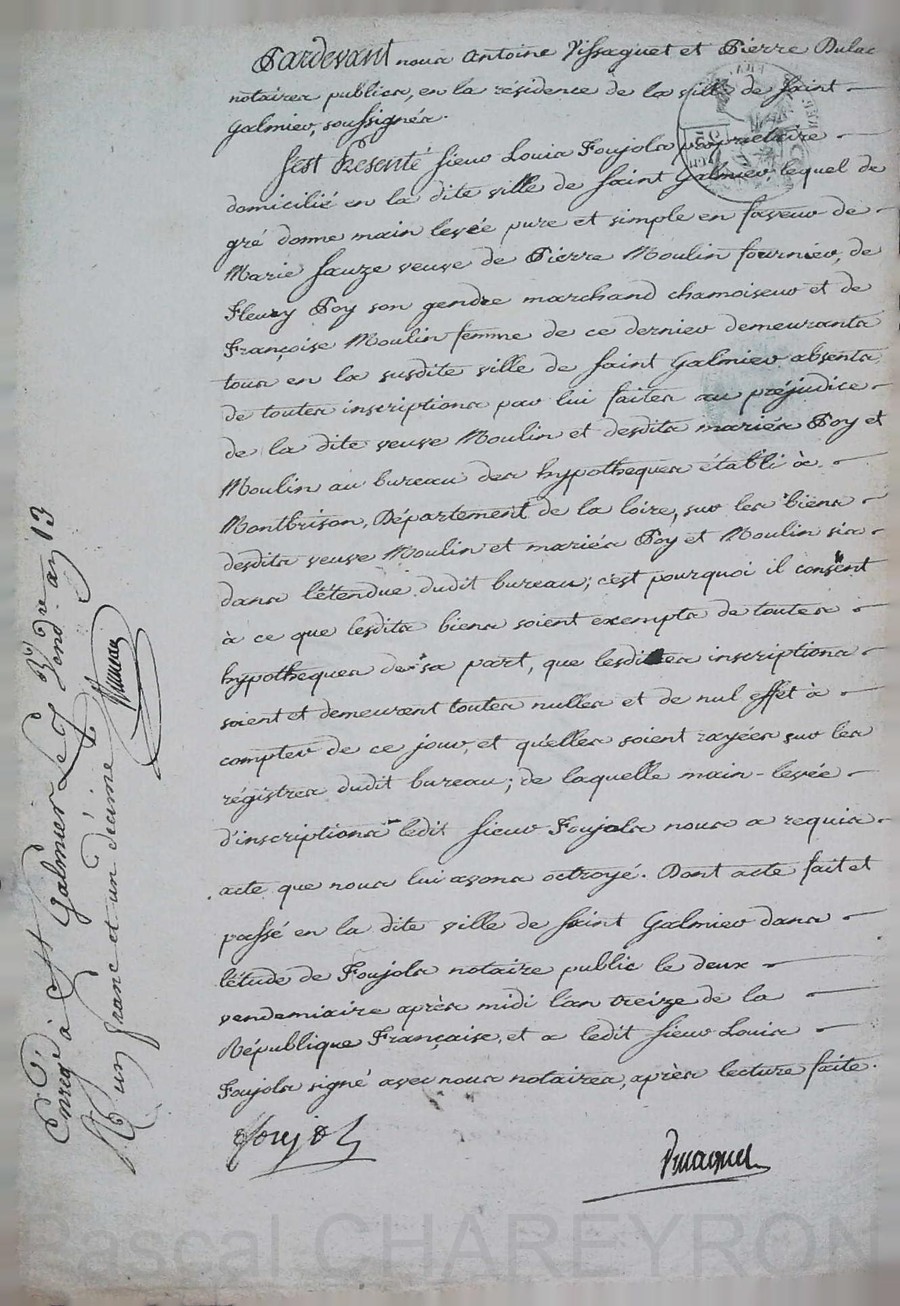 Pardevant nous Antoine Vissaguet et Pierre Dulac
notaires publics, en la résidence de la ville de Saint
Galmier, soussignés.
S'est Présenté Sieur Louis Foujols propriétaire
domicilié en la dite ville de Saint Galmier, lequel de
gré donne main levée pure et simple en faveur de
Marie Sauze veuve de Pierre Moulin fournier, de
Fleury Poy son gendre marchand chamoiseur et de
Françoise Moulin femme de ce dernier demeurants
tous en la susdite ville de Saint Galmier absents,
de toutes inscriptions par lui faites au préjudice
de la dite veuve Moulin et desdits mariés Poy et
Moulin au bureau des hypotheques établi à
Montbrison, Département de la loire, sur les biens
desdits veuve Moulin et mariés Poy et Moulin sis
dans l'étendue dudit bureau; c'est pourquoi il consent
à ce que lesdits biens soient exempts de toutes
hypotheques de sa part, que lesdites inscriptions
soient et demeurent toutes nulles et de nul effet à
compter de ce jour, et qu'elles soient rayées sur les
régistres dudit bureau; de laquelle main-levée
d'inscriptions ledit Sieur Foujols nous a requis
acte que nous lui avons octroyé. Dont acte fait et
passé en la dite ville de Saint Galmier dans
l'étude de Foujols notaire public le deux
vendemiaire après midi l'an treize de la
République Française, et a ledit Sieur Louis
Foujols signé avec nous notaires, après lecture faite.
Foujols
Enrég. à St Galmier le 3 vend.re an 13
un franc et un décime
Pascal CHAREYRON